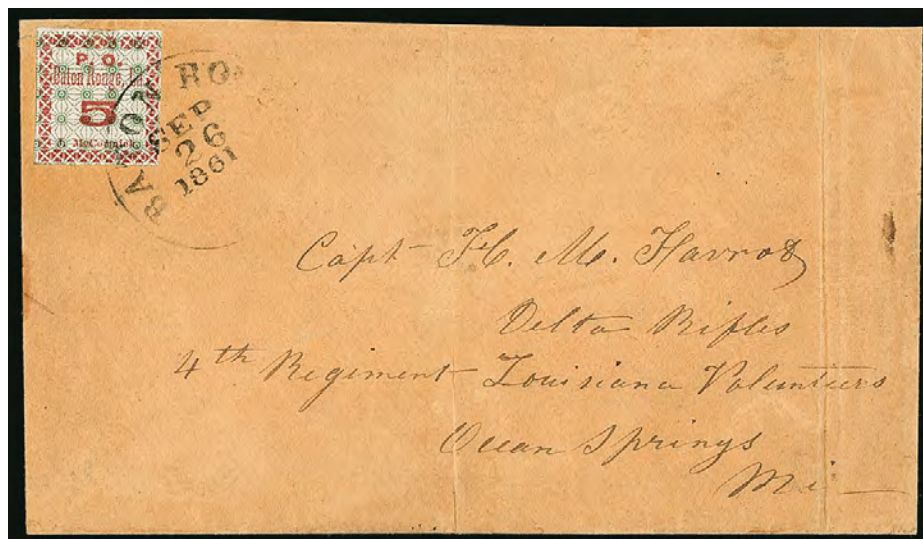 P. O.
Baton Rouge, L
5
J. McCormick
BATON RO
SEP
26
1861
Capt H. M. Favrot
Delta Rifles
4th Regiment Louisiana Volunteers
Ocean Springs
Mi